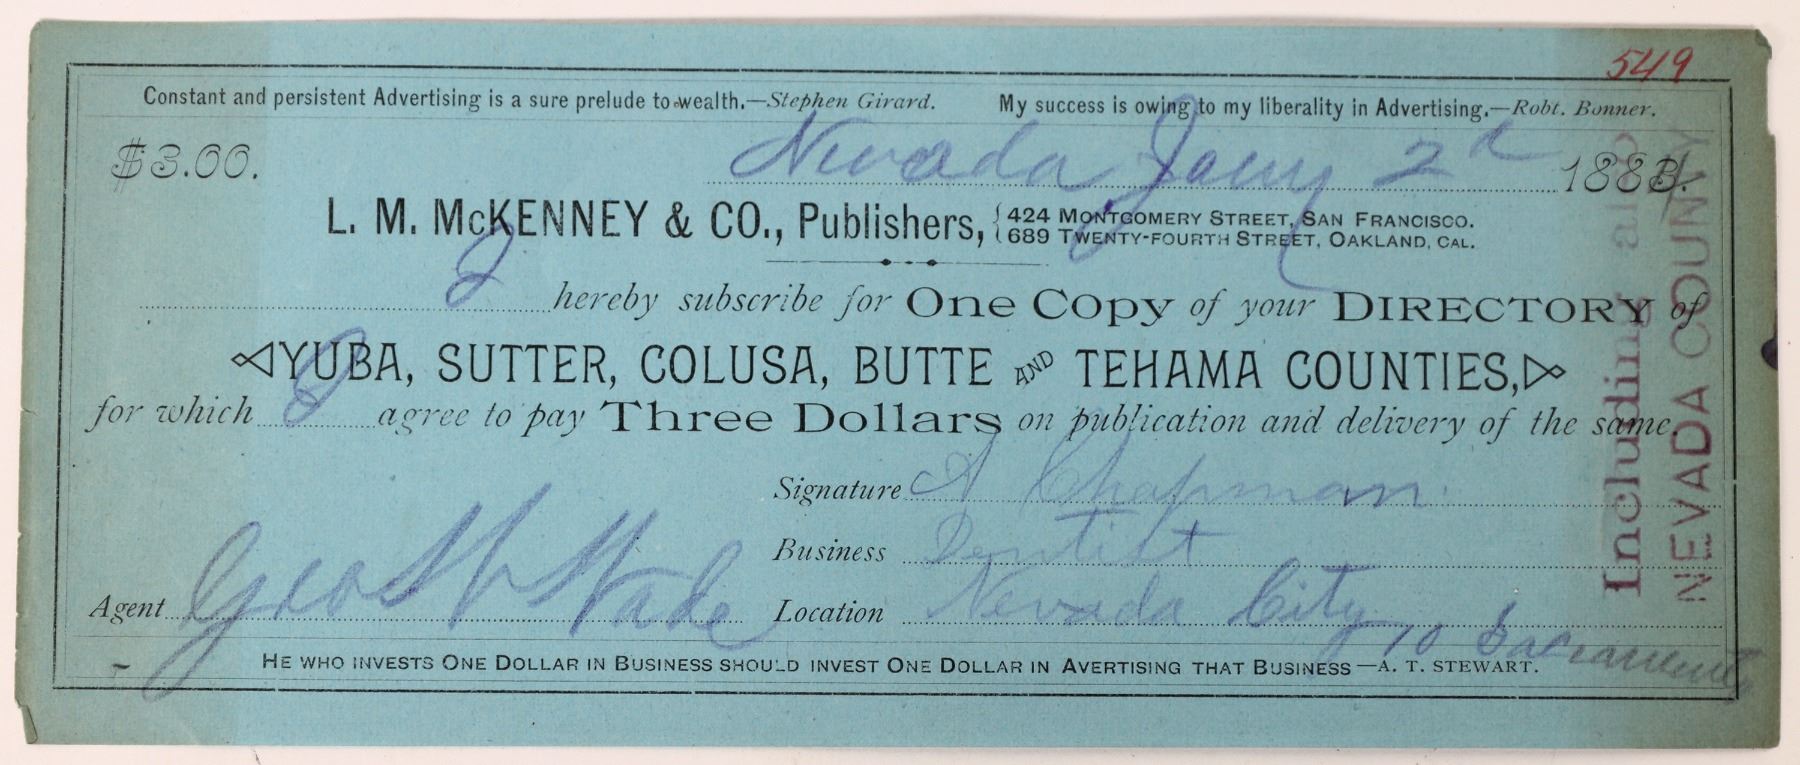 549
Constant and persistent Advertising is a sure prelude to wealth.—Stephen Girard. My success is owing to my liberality in Advertising.—Robt. Bonner.
$3.00. Nevada Jany 2d 1884.
L. M. McKENNEY & CO., Publishers, { 424 MONTGOMERY STREET, SAN FRANCISCO.
{ 689 TWENTY-FOURTH STREET, OAKLAND, CAL.
I hereby subscribe for One Copy of your DIRECTORY of
YUBA, SUTTER, COLUSA, BUTTE AND TEHAMA COUNTIES,
for which I agree to pay Three Dollars on publication and delivery of the same.
Signature A Chapman.
Business Dentist
Agent Geo W Wade Location Nevada City
10 Sacramento
HE WHO INVESTS ONE DOLLAR IN BUSINESS SHOULD INVEST ONE DOLLAR IN AVERTISING THAT BUSINESS—A. T. STEWART.
Including also
NEVADA COUNTY